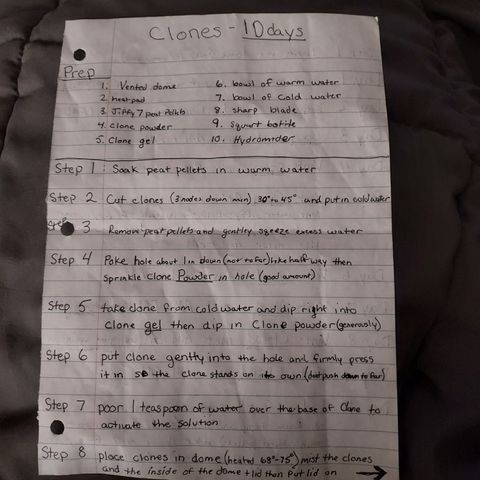 Clones - 10 days
Prep
1. Vented dome
2. heat pad
3. Jiffy 7 peat Pellets
4. Clone powder
5. Clone gel
6. bowl of warm water
7. bowl of Cold water
8. sharp blade
9. Squirt bottle
10. Hydromider
Step 1: Soak peat pellets in warm water
Step 2 Cut clones (3 nodes down min) 30° to 45° and put in cold water
Step 3 Remove peat pellets and gentley sqeeze excess water
Step 4 Poke hole about 1 in down (not to far) like half way then
Sprinkle Clone Powder in hole (good amount)
Step 5 take clone from cold water and dip right into
Clone gel then dip in Clone powder (generously)
Step 6 put clone gently into the hole and firmly press
it in so the clone stands on its own (dont push down to far)
Step 7 poor 1 teaspoon of water over the base of Clone to
activate the solution
Step 8 place clones in dome (heated 68°-75°) mist the clones
and the inside of the dome + lid then Put lid on →